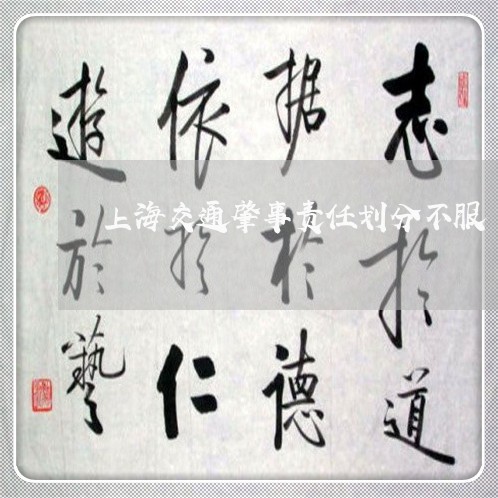 志於道
据於德
依於仁
遊於藝
上海交通肇事责任划分不服